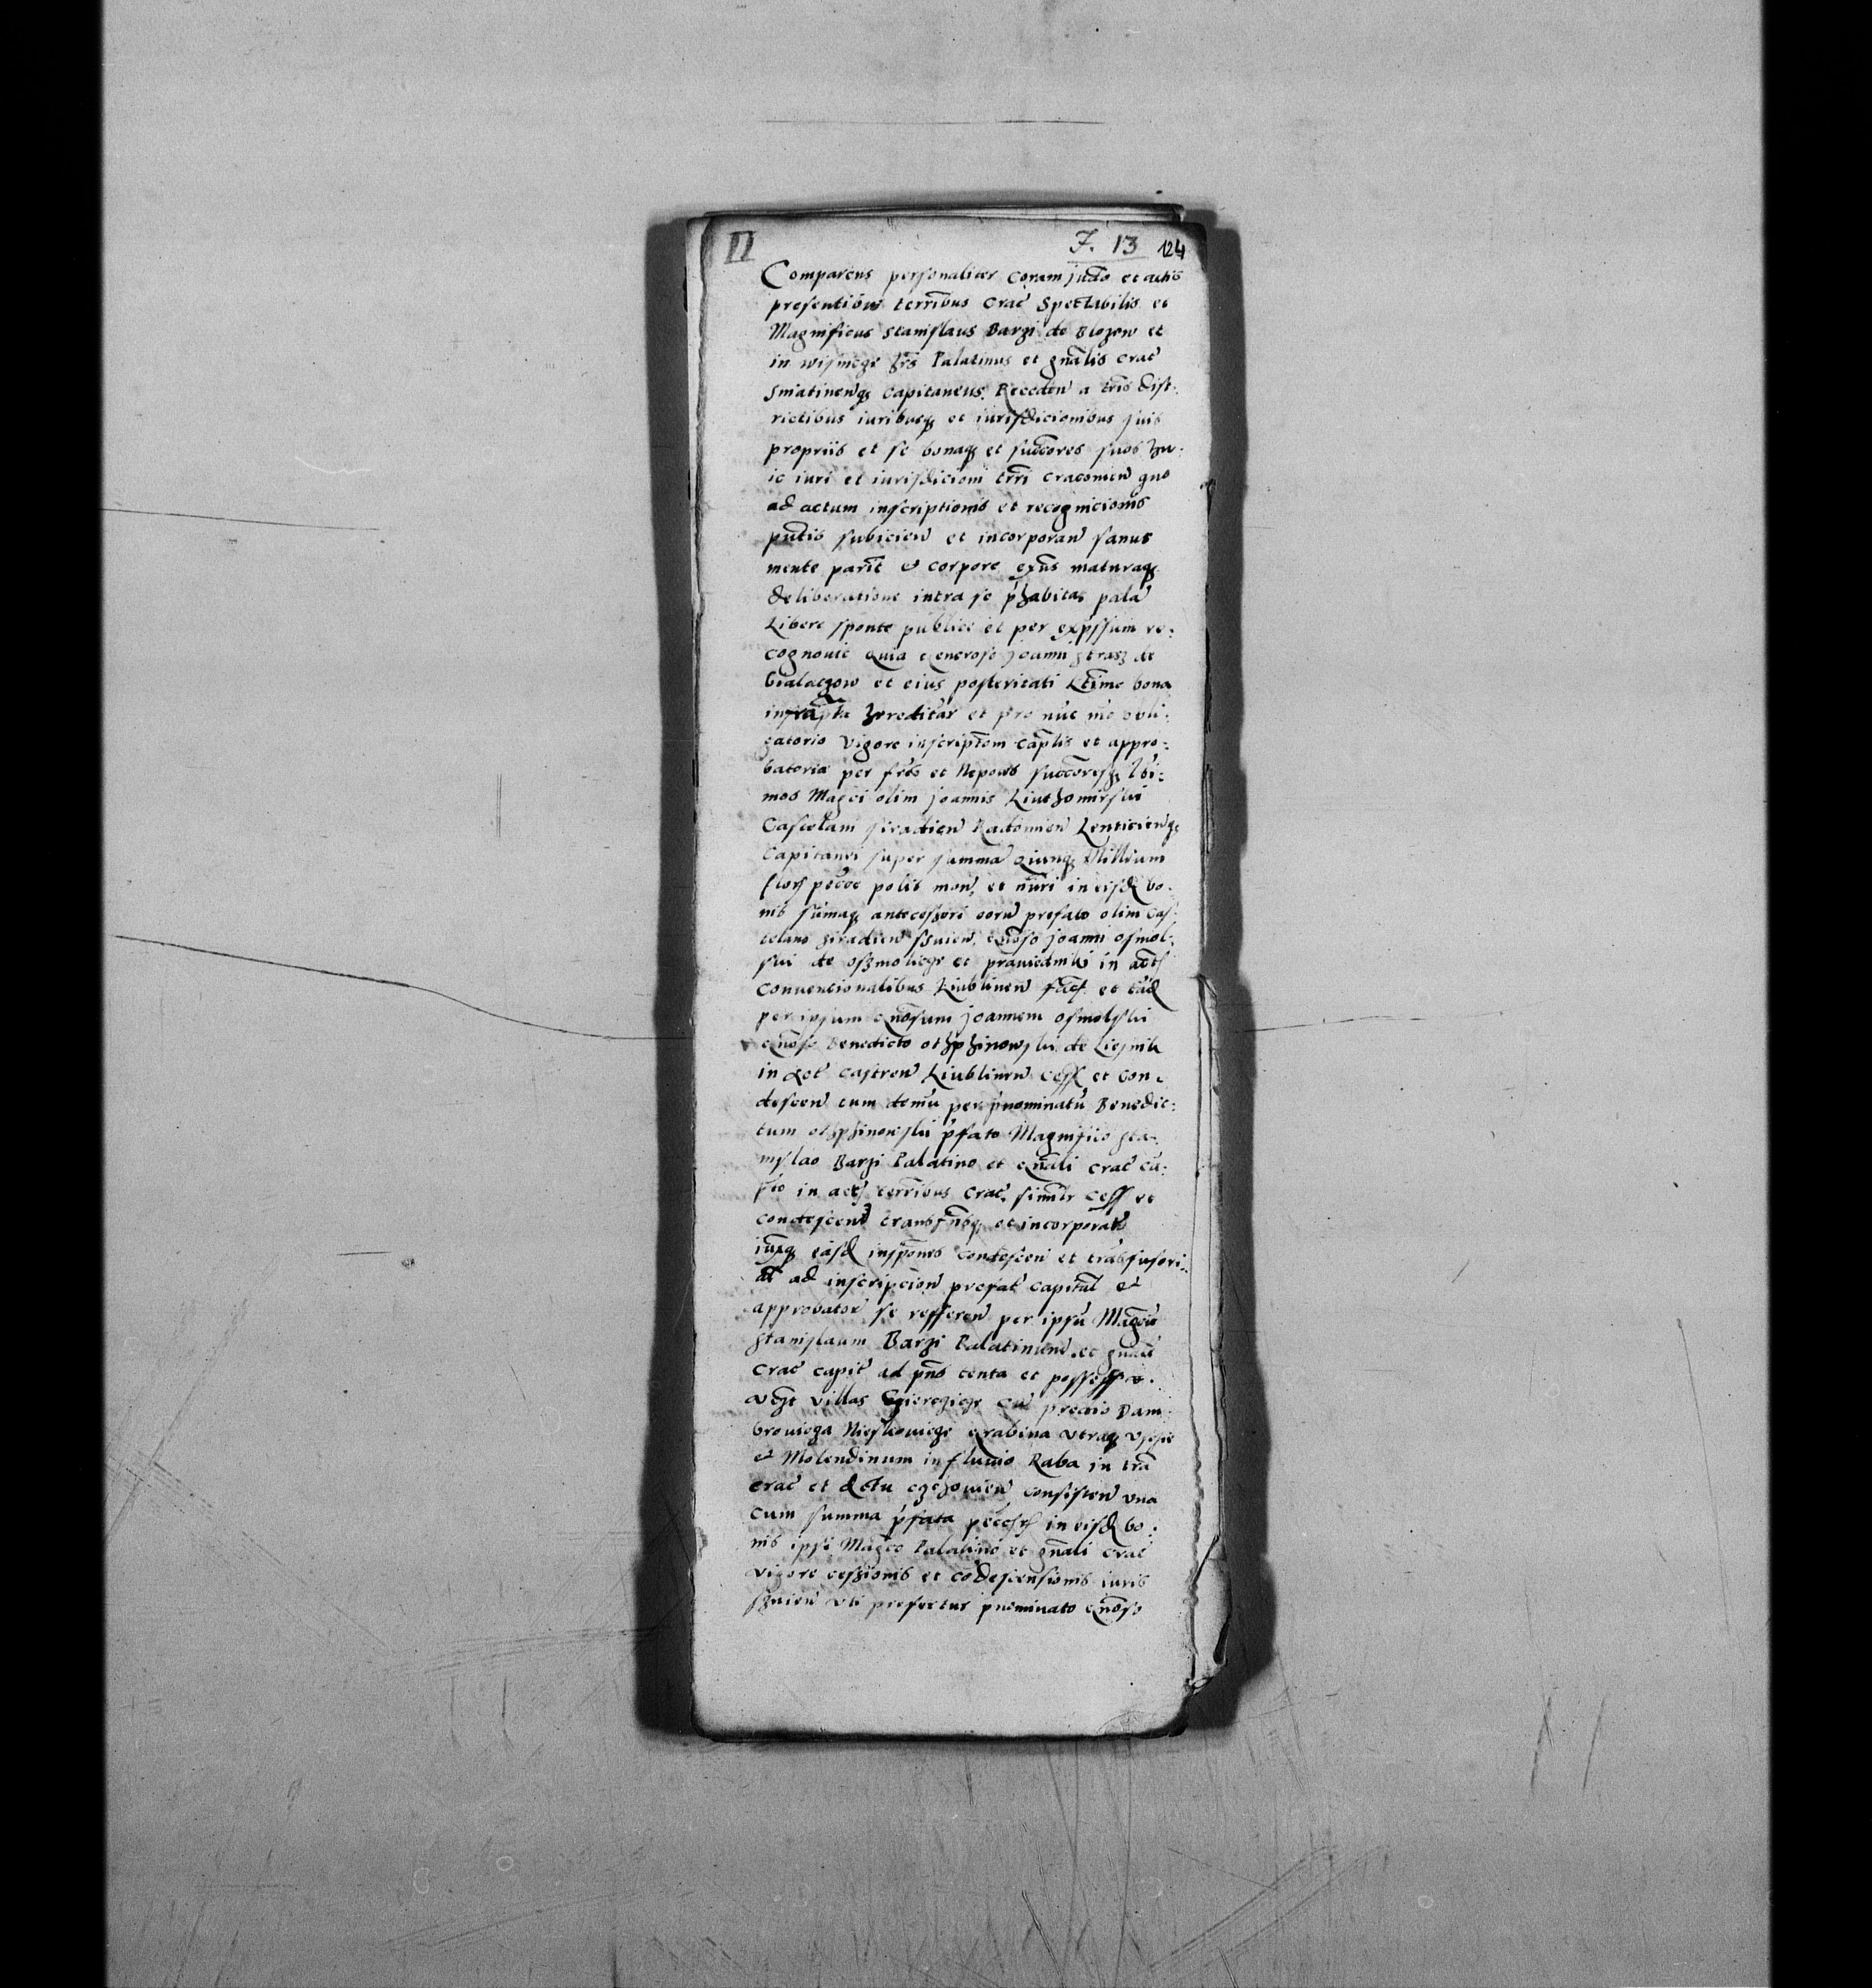 II F. 13 124
Comparens personaliter coram judo et actis
presentibus terribus Crac Spectabilis et
Magnificus Stanislaus Barzi de Blozow et
in wisnicze hrs Palatinus et gnalis Crac
Sniatinenq Capitaneus. Receden a tris dist:
rictibus iuribusq et iurisdicionibus suis
propriis et se bonaq et succores suos hu:
ic iuri et iurisdicioni trri Cracovien quo
ad actum inscriptionis et recognicionis
pntis subicien et incorporan sanus
mente parit et corpore exns maturaq
deliberatione intra se phabita pala
Libere sponte publice et per expssum re:
cognovit Quia Generoso Joanni Strasz de
Bialaczow et eius posteritati Ltime bona
infrascpta hereditar et pro nuc mo obli:
gatorio vigore inscriptom Caplis et appro:
batoria per fres et Nepotes succoresq lti:
mos Magci olim Joannis Liuthomirski
Castelani Siradien Radomien Lenticienq
Capitanei super summa Quinq Millium
flor pecoe polis mon, et iuri in eisd bo:
nis sumaq antecessori eoru prefato olim Cas:
telano Siradien svien, Gnoso Joanni Osmol:
ski de Oszmolicze et prawiedniki in acts
Convencionalibus Liublinen fact et ead
per ipsum Gnosum Joannem Osmolski
Gnoso Benedicto othphinowski de Liesnik
in act castren Liublinen cess et con:
descen tum demu per pnominatu Benedic:
tum othphinowski pfato Magnifico Sta:
nislao Barzi Palatino et Gnali Crac
in acts terribus Crac. similr cess et
condescen transfusq et incorporat
easd inspones condescen et transfusori:
at ad inscripcion prefat capital et
approbator se refferen per ipsu Magcu
Stanislaum Barzi Palatinum et gnale
Crac capit ad pns tenta et possessa.
vczt villas cu predio Dam:
browicza Nieskowicze Grabina utraq
et Molendinum in fluvio Raba in tra
Crac et dctu czchovien consisten una
cum summa pfata in eisd bo:
nis ipsi Magco Palatino et gnali Crac
vigore cessionis et codescensionis iuris
svien uti prefertur pnominato Gnoso